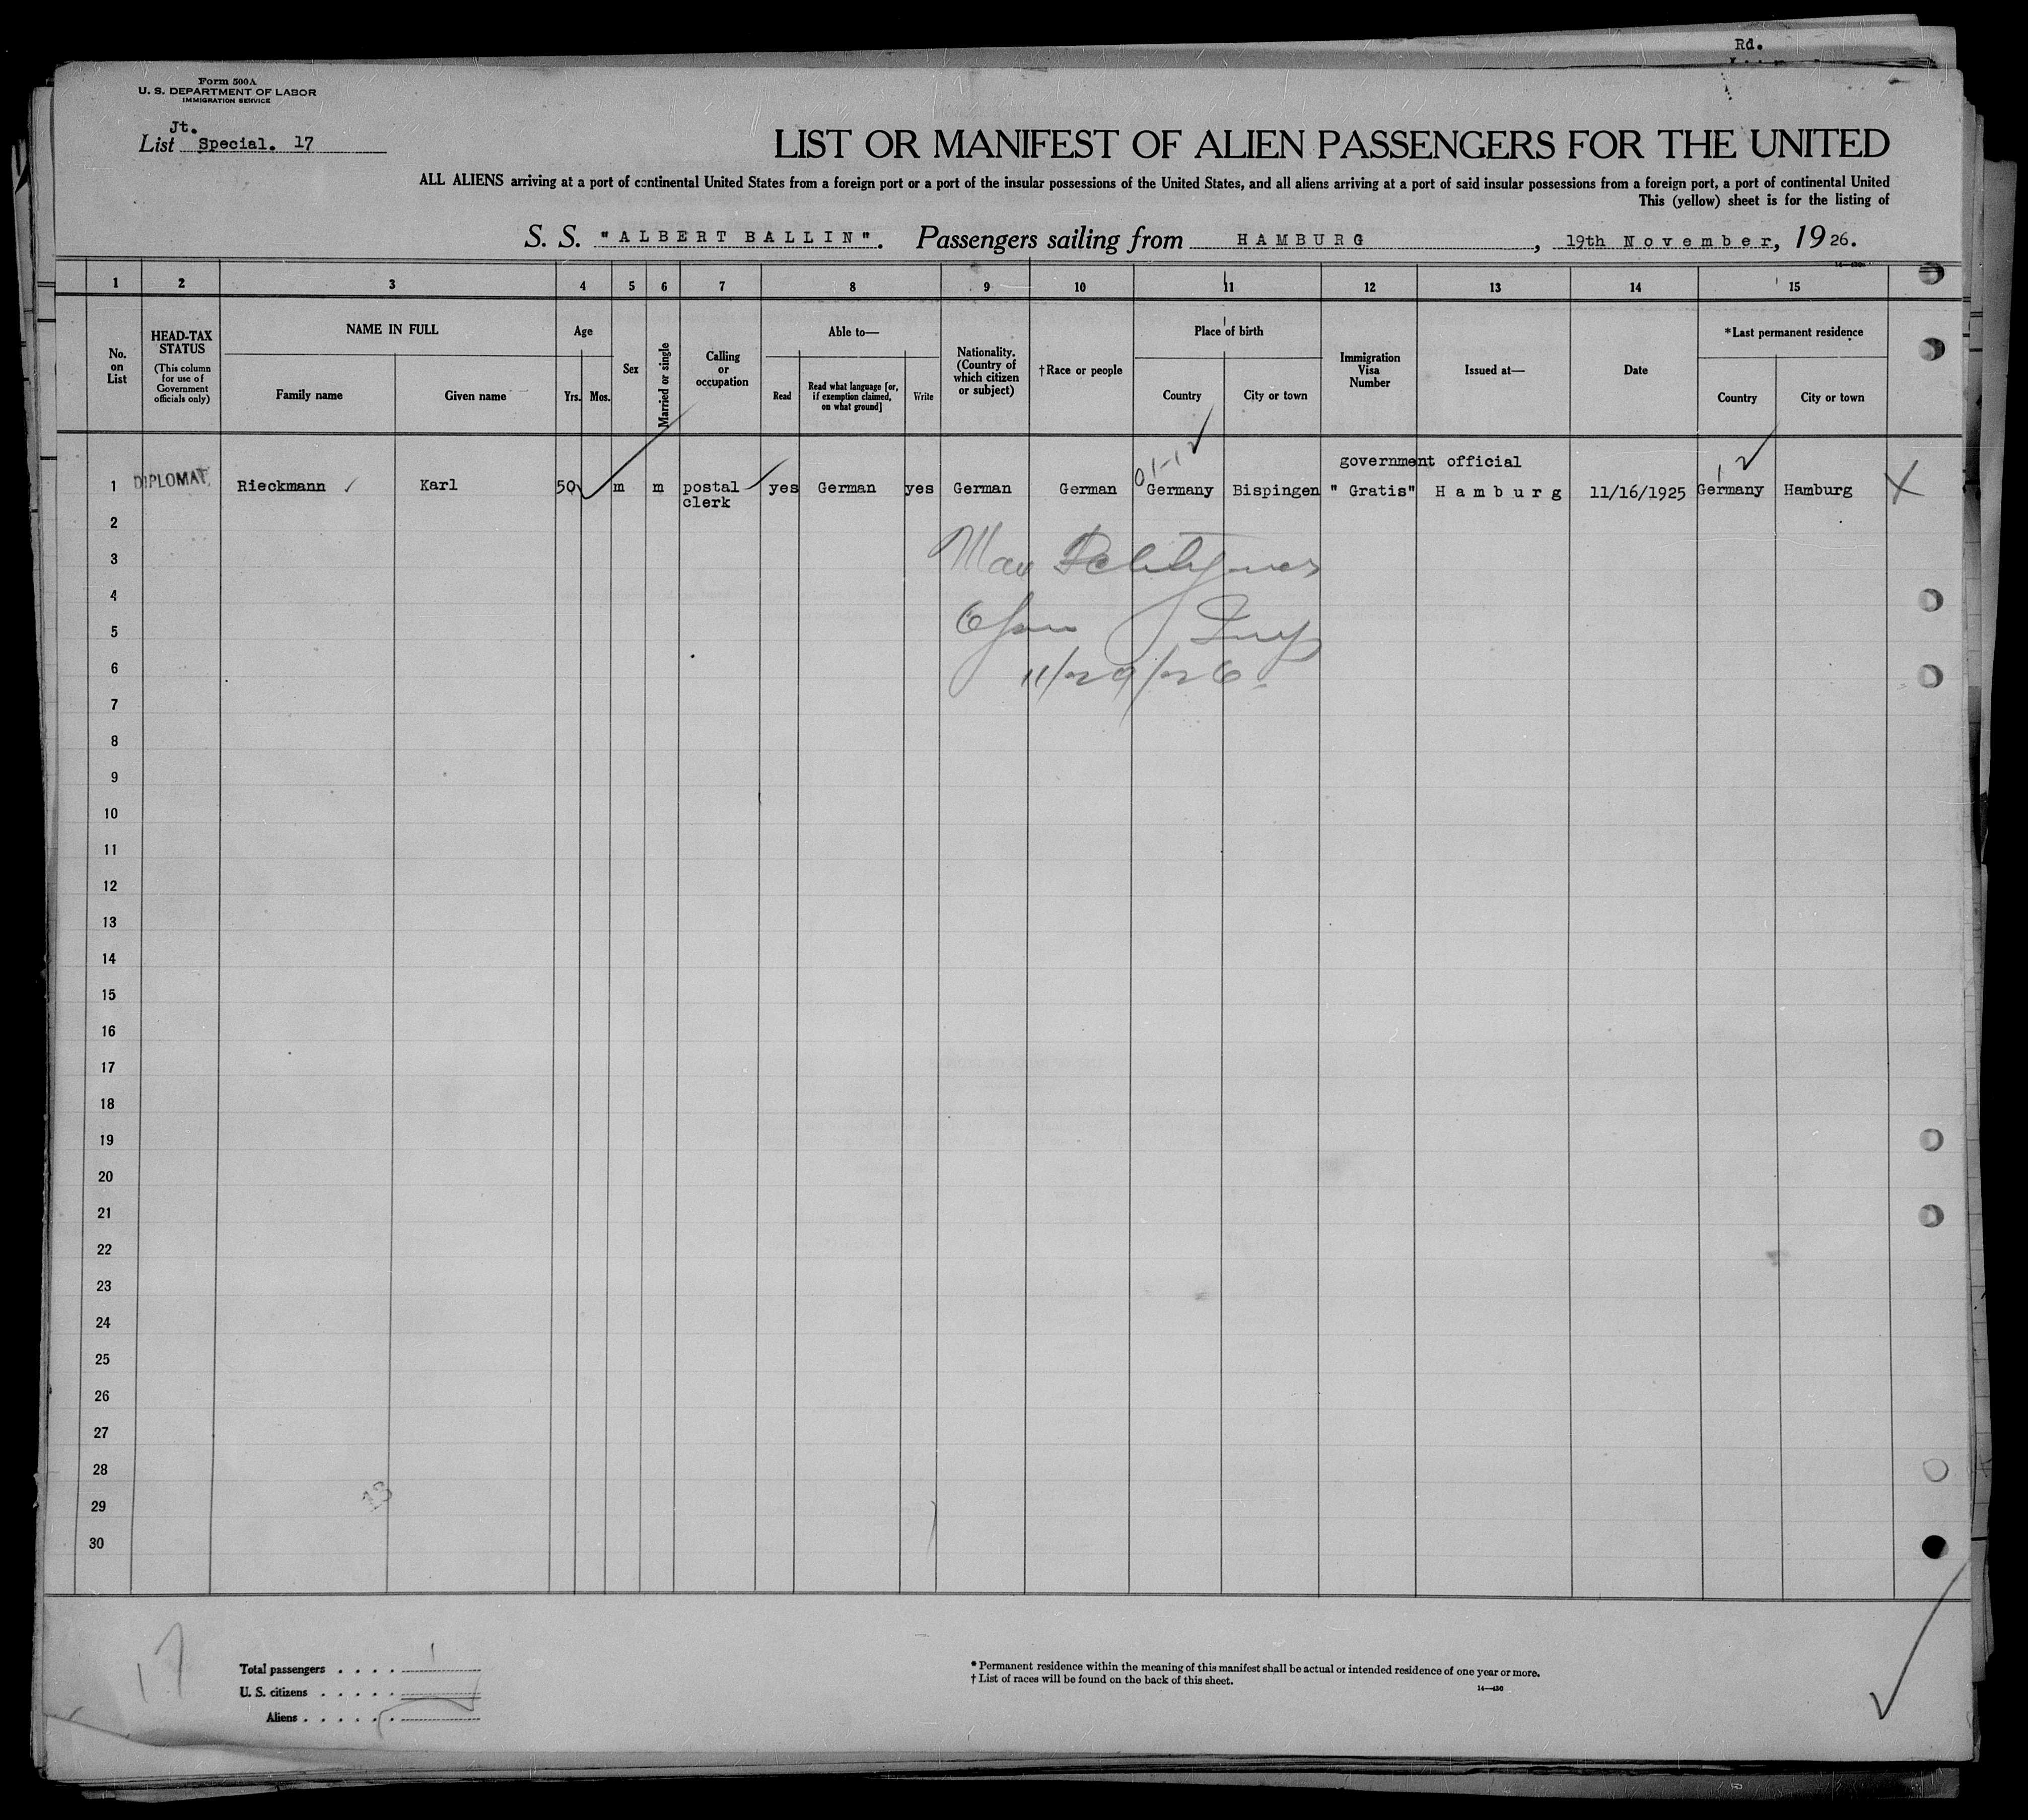 Rd.
Form 500A
U. S. DEPARTMENT OF LABOR
IMMIGRATION SERVICE
Jt.
List Special. 17
LIST OR MANIFEST OF ALIEN PASSENGERS FOR THE UNITED
ALL ALIENS arriving at a port of continental United States from a foreign port or a port of the insular possessions of the United States, and all aliens arriving at a port of said insular possessions from a foreign port, a port of continental United
This (yellow) sheet is for the listing of
S. S. "ALBERT BALLIN". Passengers sailing from HAMBURG, 19th November, 1926.
14—430
1 2 3 4 5 6 7 8 9 10 11 12 13 14 15
No. on List
HEAD-TAX STATUS
(This column for use of Government officials only)
NAME IN FULL
Family name Given name
Age
Yrs. Mos.
Sex
Married or single
Calling or occupation
Able to—
Read
Read what language [or, if exemption claimed, on what ground]
Write
Nationality. (Country of which citizen or subject)
†Race or people
Place of birth
Country City or town
Immigration Visa Number
Issued at—
Date
*Last permanent residence
Country City or town
01-1
government official
1 DIPLOMAT Rieckmann Karl 50 m m postal yes German yes German German Germany Bispingen "Gratis" Hamburg 11/16/1925 Germany Hamburg
clerk
2
3
4
5
6
11/29/26
7
8
9
10
11
12
13
14
15
16
17
18
19
20
21
22
23
24
25
26
27
28
29
30
17
Total passengers . . . . 1
U. S. citizens . . . . .
Aliens . . . . . .
* Permanent residence within the meaning of this manifest shall be actual or intended residence of one year or more.
† List of races will be found on the back of this sheet.
14—430